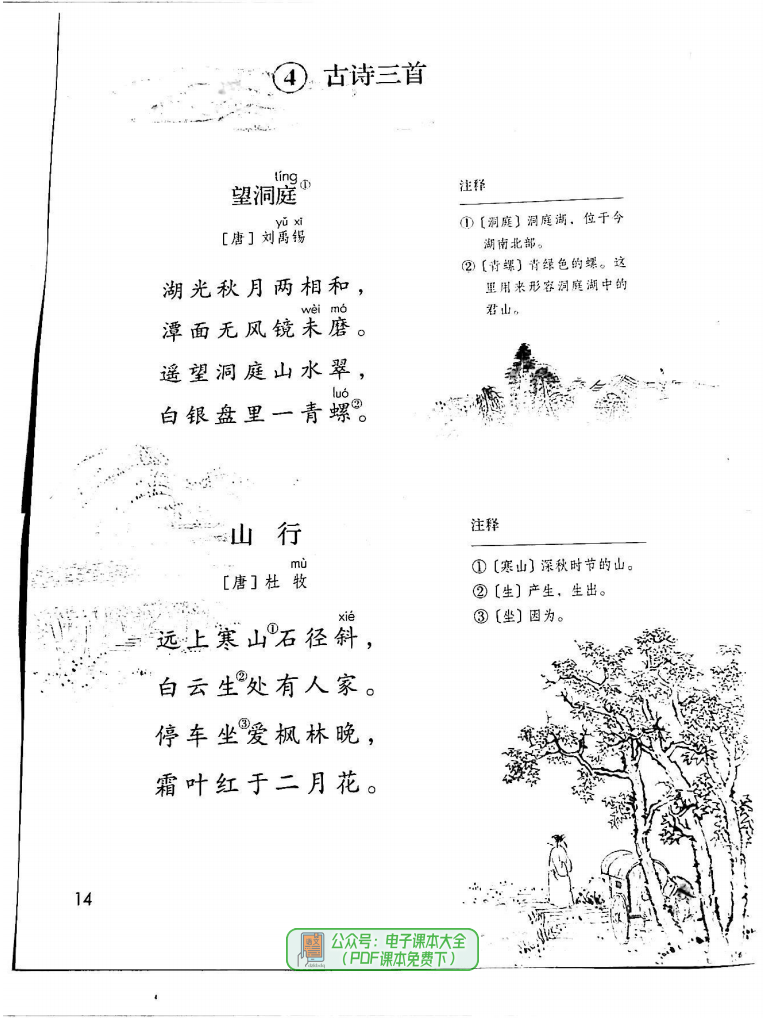 ④ 古诗三首
tíng
望洞庭①
yǔ xī
［唐］刘禹锡
湖光秋月两相和，
wèi mó
潭面无风镜未磨。
遥望洞庭山水翠，
luó
白银盘里一青螺②。
注释
①〔洞庭〕洞庭湖，位于今
湖南北部。
②〔青螺〕青绿色的螺。这
里用来形容洞庭湖中的
君山。
山 行
mù
［唐］杜 牧
xié
远上寒山①石径斜，
白云生②处有人家。
停车坐③爱枫林晚，
霜叶红于二月花。
注释
①〔寒山〕深秋时节的山。
②〔生〕产生，生出。
③〔坐〕因为。
14
语文
公众号：电子课本大全
（PDF课本免费下）